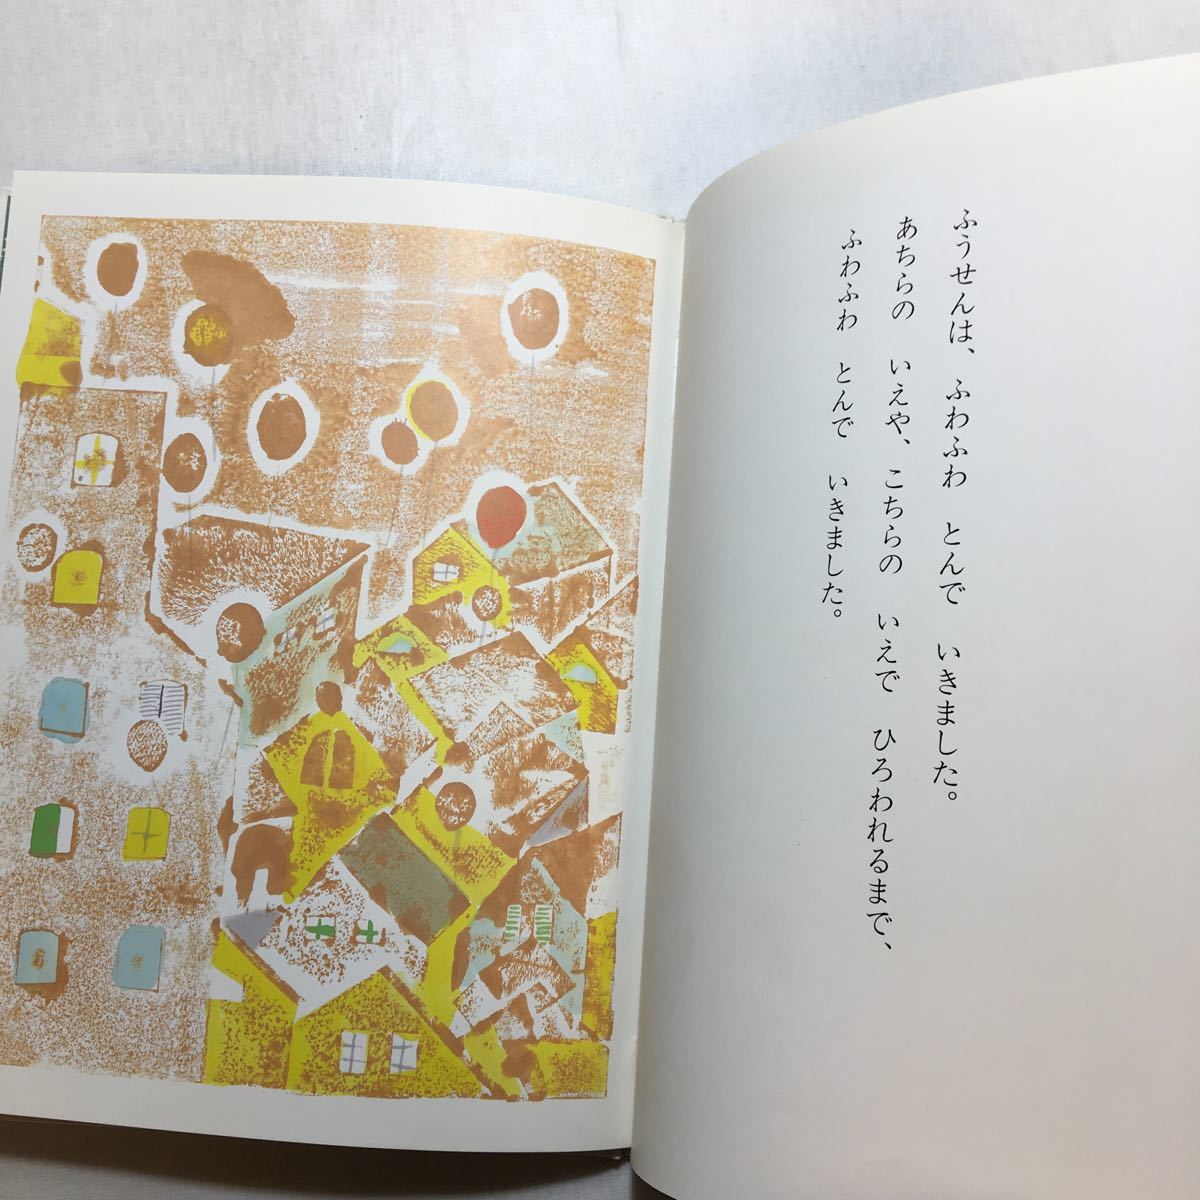 ふうせんは、ふわふわ　とんで　いきました。
あちらの　いえや、こちらの　いえで　ひろわれるまで、
ふわふわ　とんで　いきました。